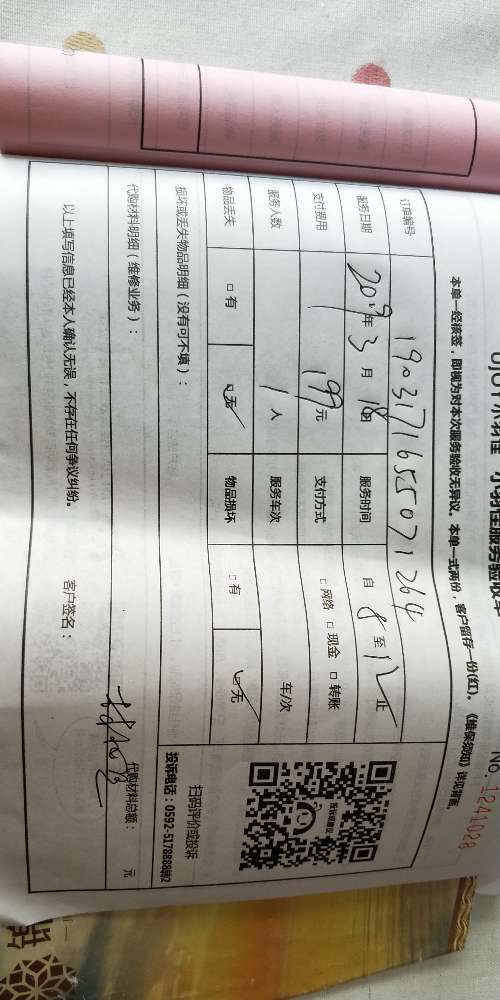 UJOY小羽佳 小羽佳服务验收单
No. 1241028
本单一经核签，即视为对本次服务验收无异议。本单一式两份，客户留存一份(红)。《维保须知》详见背面。
订单编号 1903171655071264
服务日期 2019年 3 月 18日 服务时间 自 8 至 12 止
支付费用 199元 支付方式 □ 网络 □ 现金 □ 转账
服务人数 1 人 服务车次 车/次
物品丢失 □ 有 □无 物品损坏 □ 有 □无
损坏或丢失物品明细（没有可不填）：
投诉或建议
扫码评价或投诉
投诉电话：0592-5178888转2
代购材料明细（维修业务）：
代购材料总额： 元
以上填写信息已经本人确认无误，不存在任何争议纠纷。 客户签名：